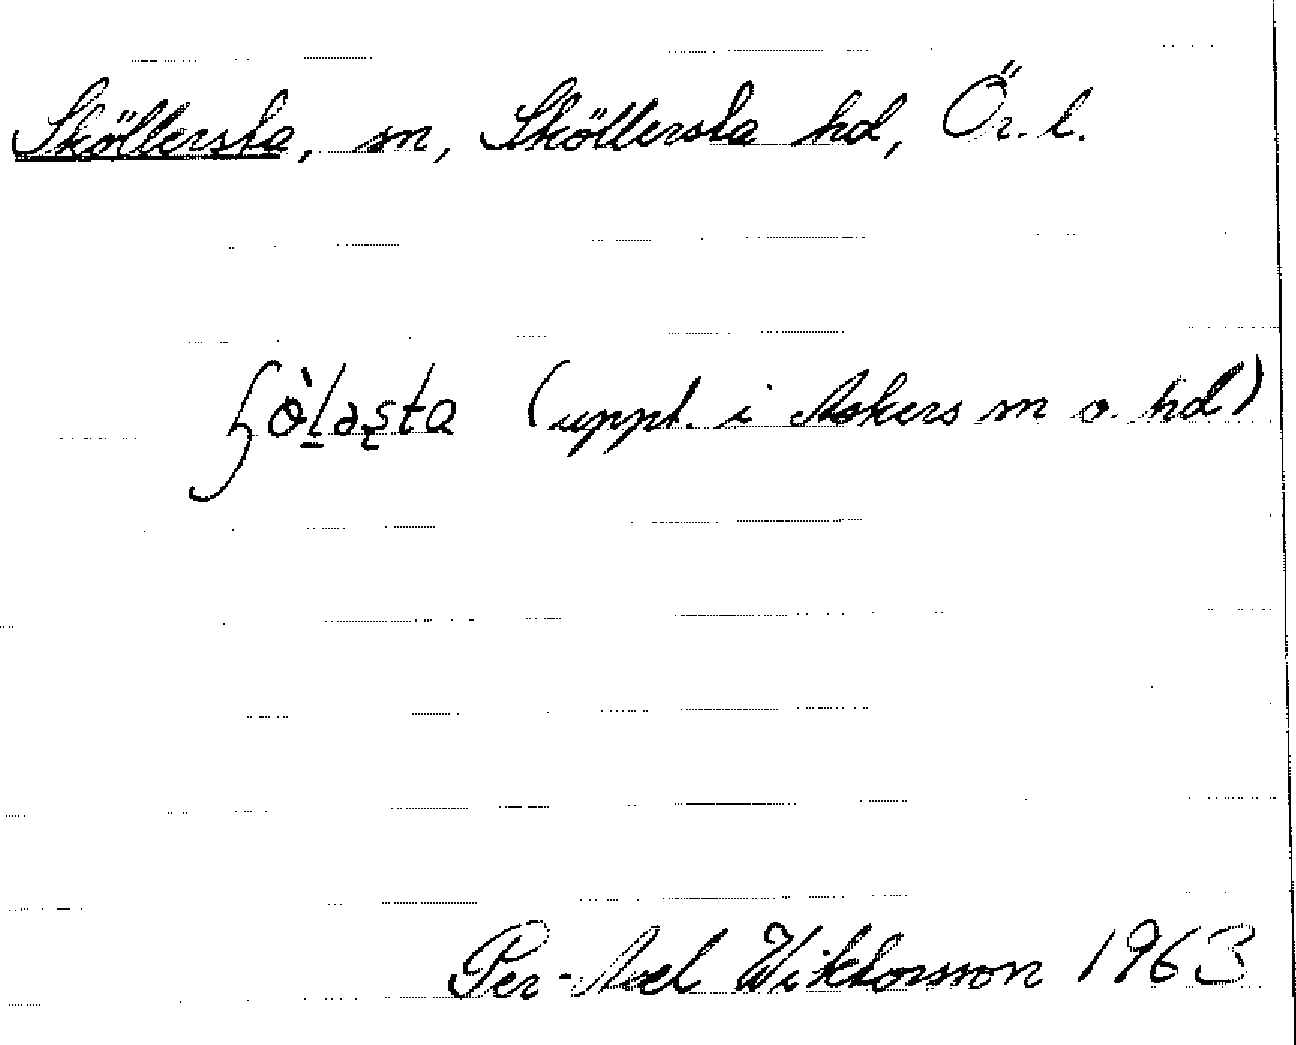 Sköllersta, sn, Sköllersta hd, Ör. l.
(uppt. i Askers sn o. hd)
Per-Axel Wiktorsson 1963